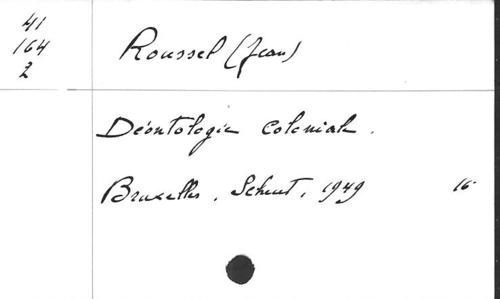 41
164
2
Roussel (Jean)
Déontologie coloniale.
Bruxelles, Scheut, 1949 16